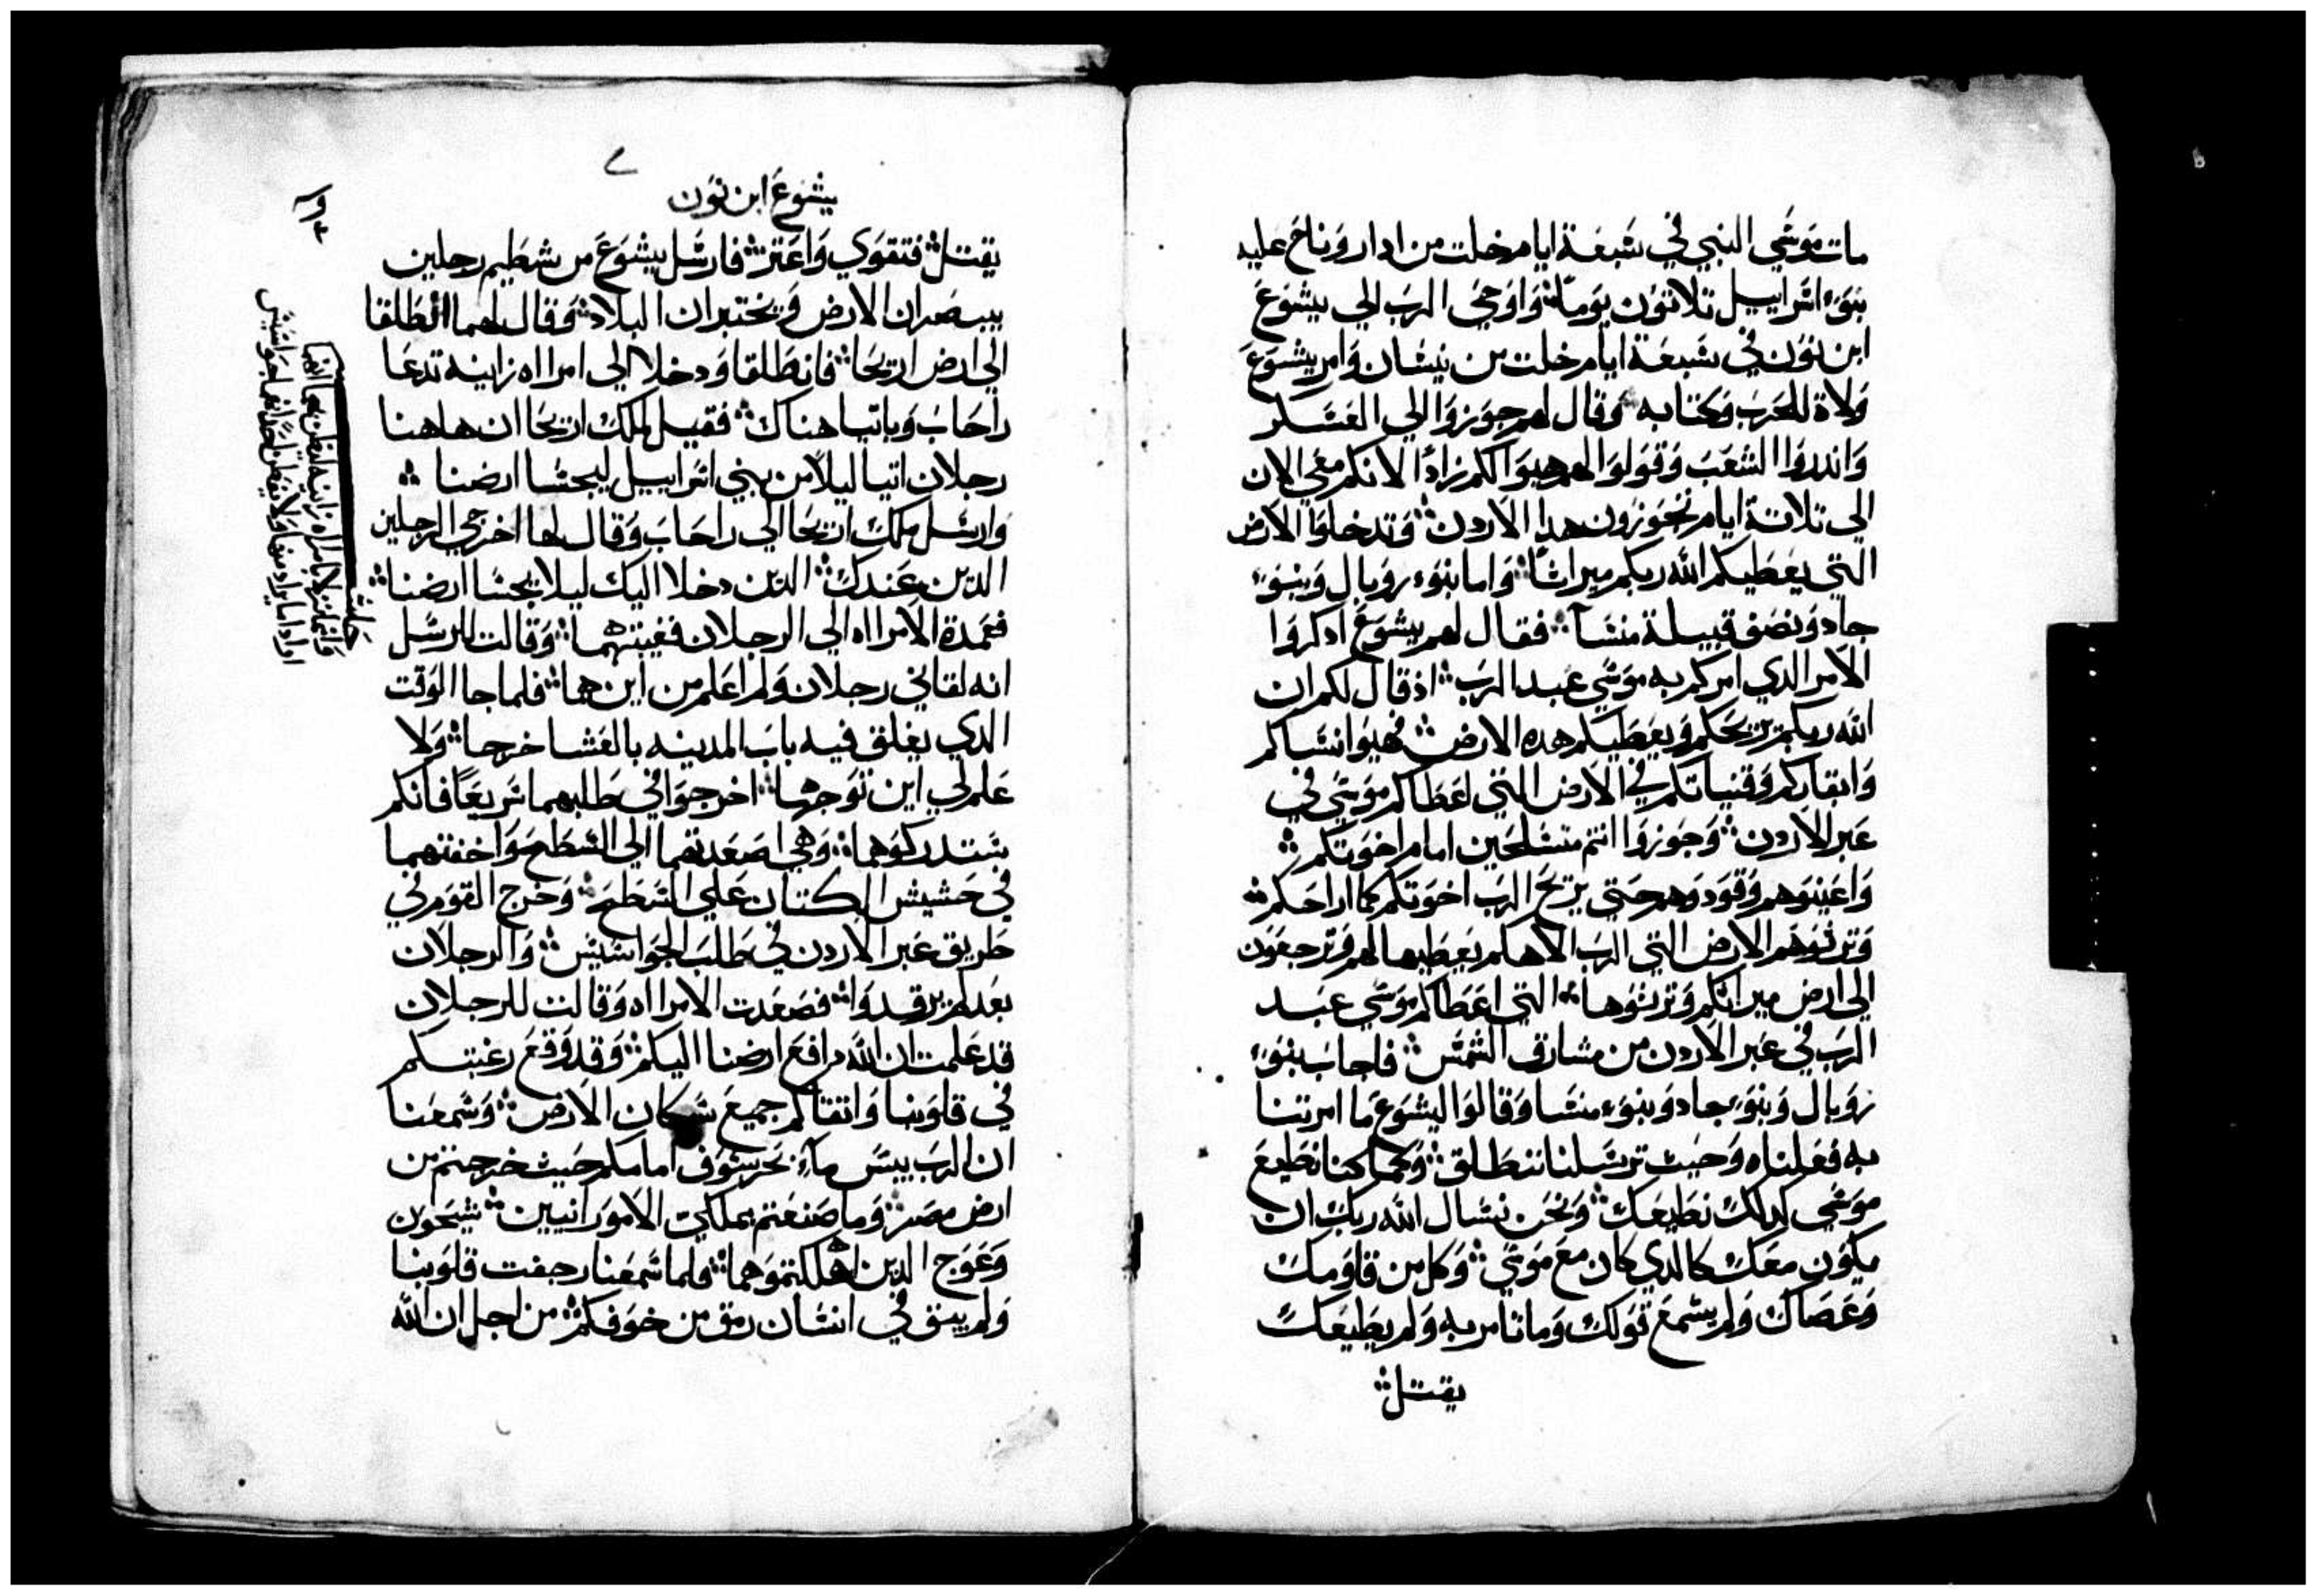 مات موسي النبي في سبعة ايام خلت من ادار وناح عليه
بنو اسراييل تلاتون يوما وَاوحي الرب الي يشوع
ابن نون في سبعة ايام خلت من نيسان وَامر يشوع
ولاة الحرب وكتابه وقال لهم جوزوا الي العسكر
وَاندروا الشعب وقولوا لهم هيوا لكم زادًا لانكم معي الان
الي تلاتة ايام تجوزون هدا الاردن وتدخلوا الارض
التي يعطيكم الله ربكم ميراثا وَاما بنو روبال وبنو
جاد ونصف قبيلة منسا فقال لهم يشوع ادكروا
الامر الدي امركم به موسي عبد الرب اذ قال لكم ان
الله ربكم يريحكم ويعطيكم هده الارض فهيوا نساكم
وَابقاركم وقنياتكم في الارض التي اعطاكم موسي في
عبر الاردن وجوزوا انتم متسلحين امام اخوتكم
وَاعينوهم وقودوهم حتي يريح الرب اخوتكم كما اراحكم
وترثوهم الارض التي الرب الاهكم يعطيها لهم وترجعون
الي ارض ميراثكم وترثوها التي اعطاكم موسي عبد
الرب في عبر الاردن من مشارق الشمس فاجاب بنو
روبال وبنو جاد وبنو منسا وقالوا ليشوع ما امرتنا
به فعلناه وحيث ترسلنا ننطلق وكما كنا نطيع
موسي كدلك نطيعك ونحن نسال الله ربك ان
يكون معك كالدي كان مع موسي وكل من قاومك
وعصاك ولم يسمع قولك وما تامر به ولم يطيعك
يقتل
يشوع ابن نون
يقتل فتقوي وَاعتز فارسل يشوع من شطيم رجلين
يبصران الارض ويختبران البلاد وقال لهما انطلقا
الي ارض اريحا فانطلقا ودخلا الي امراه زانيه تدعا
راحاب وباتبا هناك فقيل لملك اريحا ان هاهنا
رجلان اتيا ليلا من بني اسراييل ليجسا ارضنا
وارسل ملك اريحا الي راحاب وقال لها اخرجي الرجلين
الدين عندك الدين دخلا اليك ليلا يجسا ارضنا
فعمدة الامراه الي الرجلان فغيبتهما وقالت للرسل
انه لقاني رجلان ولم اعلم من اين هما فلما جا الوقت
الدي يغلق فيه باب المدينه بالعشا خرجا ولا
علم لي اين توجها اخرجوا في طلبهما سريعًا فانكم
ستدركوهما وهي اصعدتهما الي السطح وَاخفتهما
في حشيش الكتان علي السطح وخرج القوم في
طريق عبر الاردن في طلب الجواسيس وَالرجلان
بعد لم يرقدوا فصعدت الامراه وقالت للرجلان
قد علمت ان الله دافع ارضنا اليكم وقد وقع رعبتكم
في قلوبنا وَاتقاكم جميع سكان الارض وسمعنا
ان الرب يبس ماء بحر سوف امامكم حيث خرجتم من
ارض مصر وما صنعتم بملكي الامورانيين سيحون
وعوج الدين اهلكتموهما فلما سمعنا رجفت قلوبنا
ولم يبق في انسان رمق من خوفكم من اجل ان الله